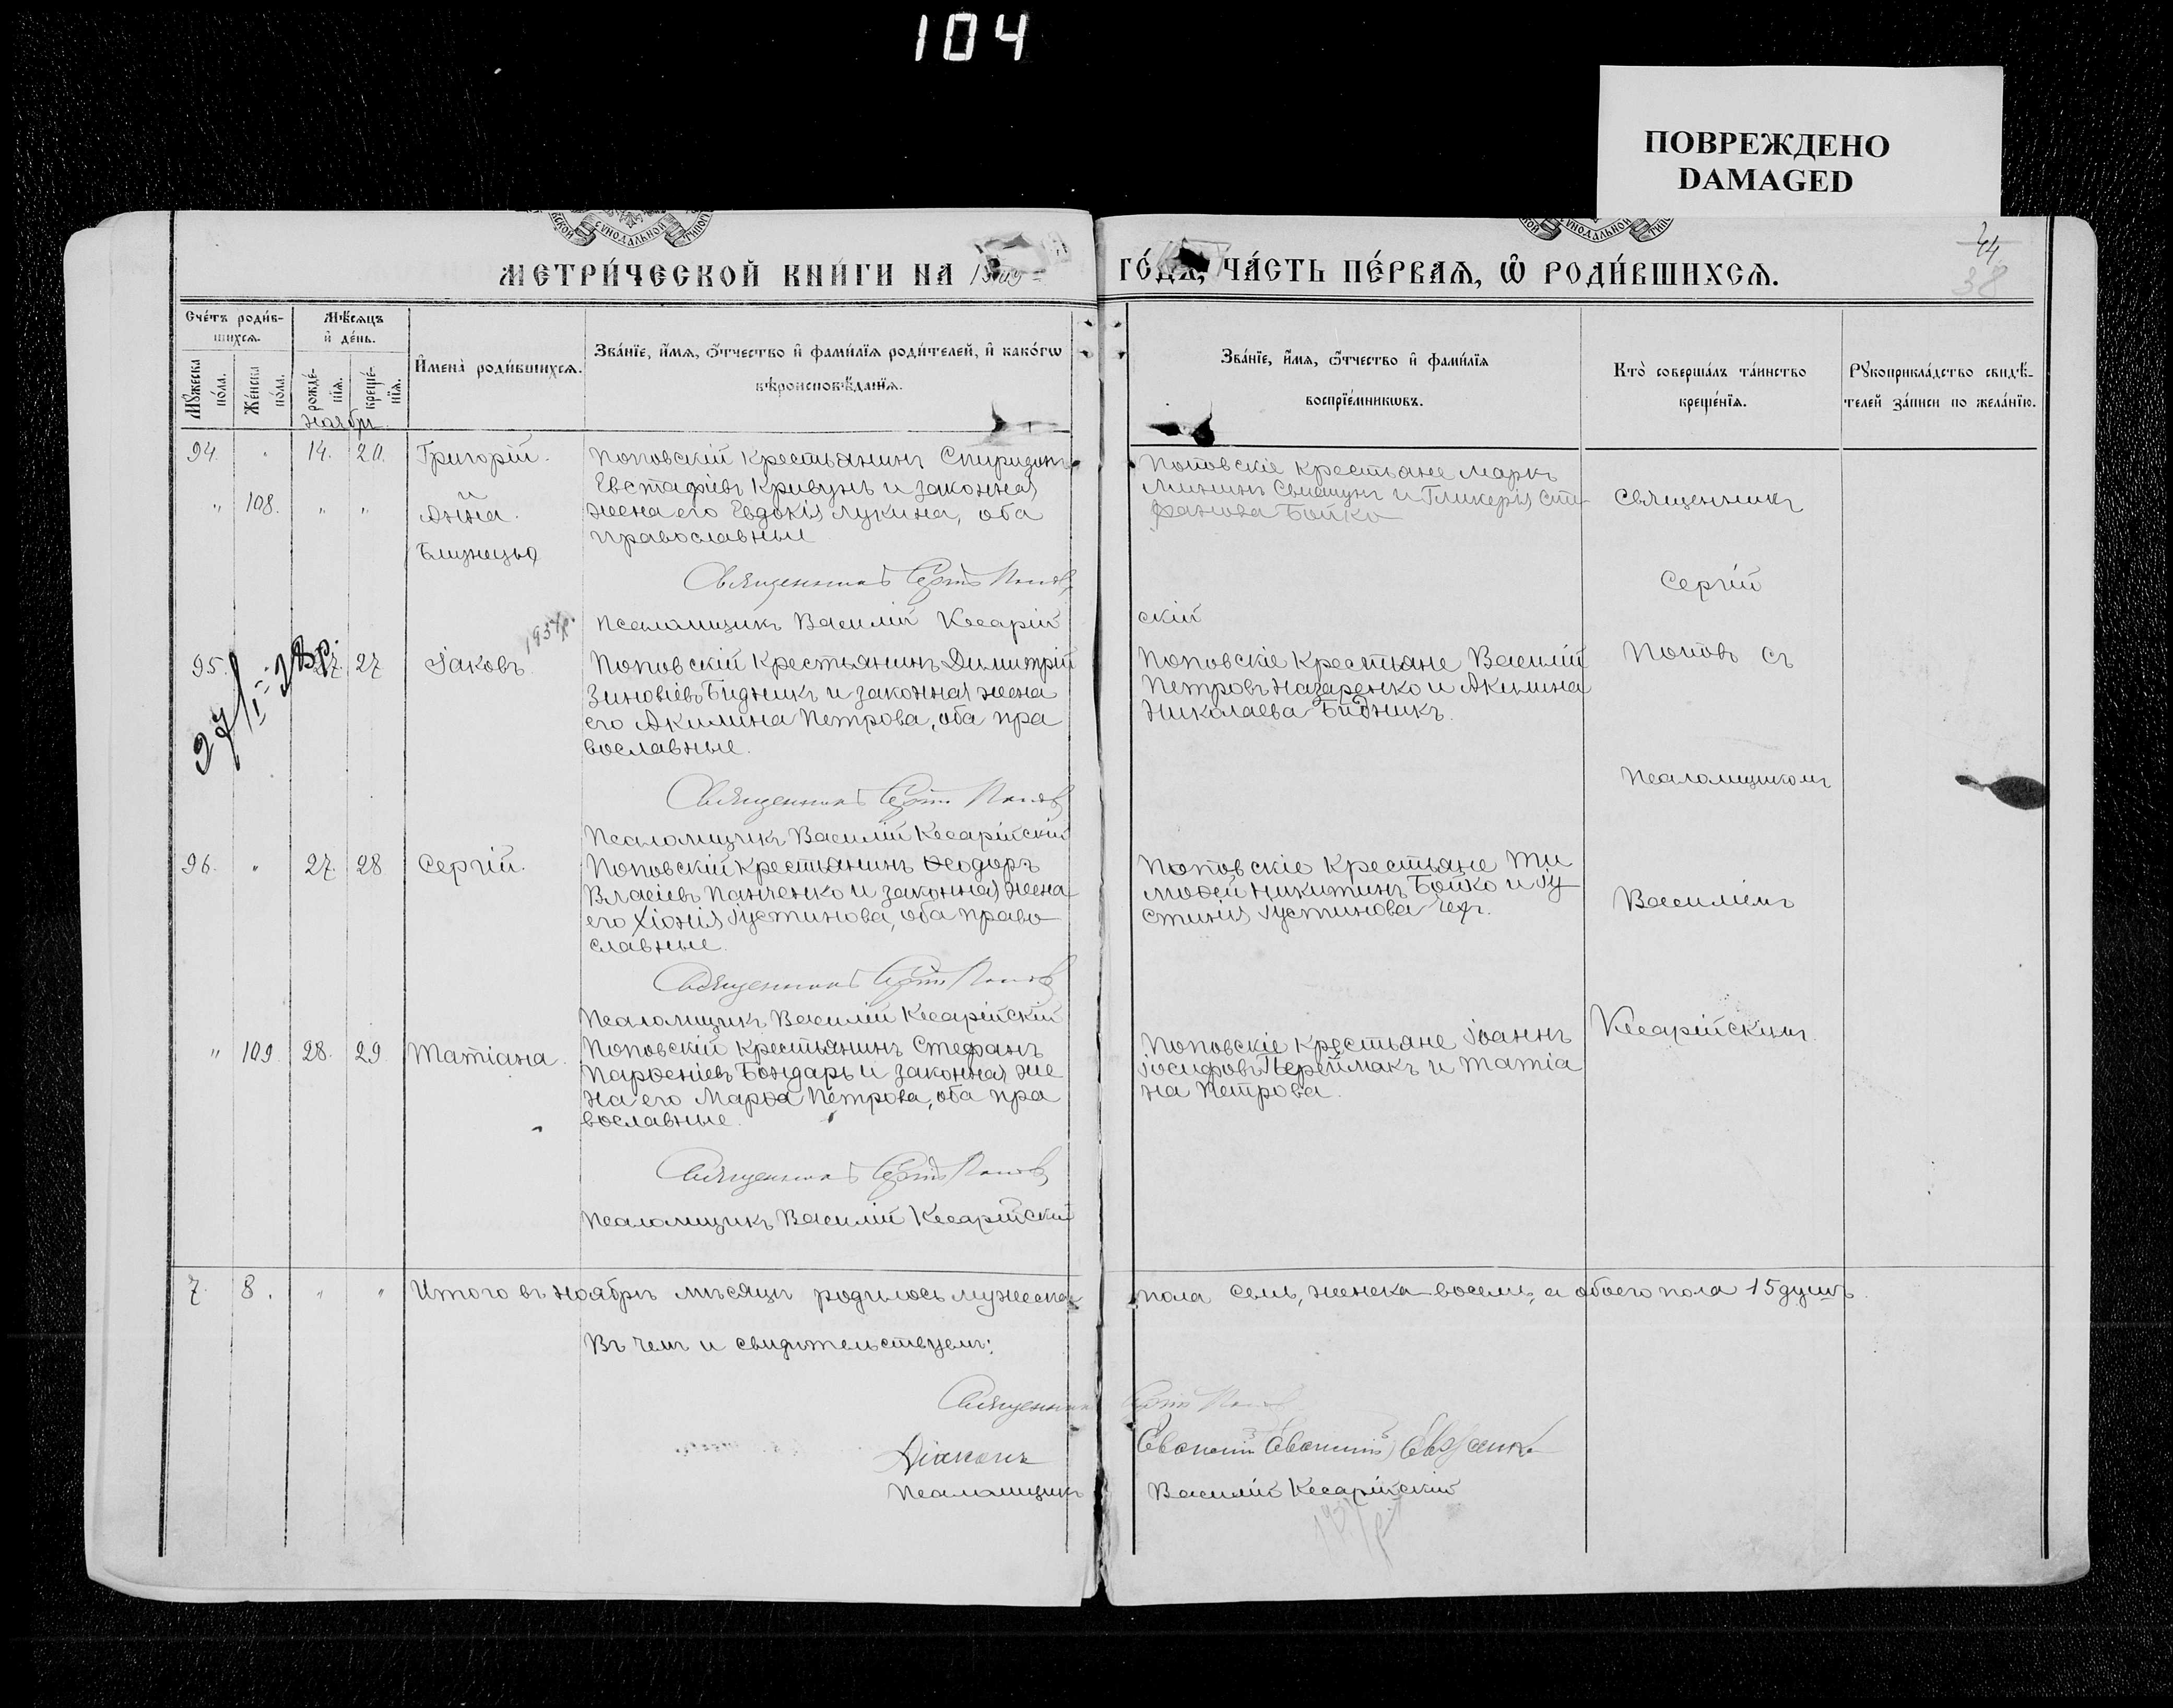 104
ПОВРЕЖДЕНО
DAMAGED
СУНОДАЛЬНОЙ
СУНОДАЛЬНОЙ
44
38
МЕТРИ́ЧЕСКОЙ КНИ́ГИ НА
ГО́ДА, ЧА́СТЬ ПЕ́РВАЯ, Ѡ РОДИ́ВШИХСЯ.
Сче́тъ роди́в-
шихся.
Мѣ́сяцъ
и҆ де́нь.
Мꙋ́жеска по́ла.
Же́нска по́ла.
рожде́-
нїя.
креще́-
нїя.
И҆мена̀ роди́вшихся.
Зва́нїе, и҆́мя, ѻ҆́тчество и҆ фами́лїя роди́телей, и҆ како́гѡ
вѣроисповѣ́данїя.
Зва́нїе, и҆́мя, ѻ҆́тчество и҆ фами́лїя
воспрїе́мникѡвъ.
Кто̀ соверша́лъ та́инство
креще́нїя.
Рꙋкоприкла́дство свидѣ́-
телей за́писи по жела́нїю.
Ноябрь
94. " 14. 20. Григорій.
Поповскій крестьянинъ Спиридонъ
Евстафіевъ Кривунъ и законная
жена его Евдокія Лукина, оба
православные
" 108. " " Анна.
Близнецы
Поповскіе крестьяне Маркъ
Мининъ и Гликерія Сте-
фанова Бойко
Священникъ
Священникъ Сергій Поповъ
Псаломщикъ Василій Кесарій
скій
Сергій
95. 27. 27 Іаковъ.
Поповскій крестьянинъ Димитрій
Зиновіевъ Бидникъ и законная жена
его Акилина Петрова, оба пра
вославные.
Поповскіе крестьяне Василій
Петровъ Назаренко и Акилина
Николаева Бидникъ.
Поповъ съ
Священникъ Сергій Поповъ
Псаломщикъ Василій Кесарійскій
Псаломщикомъ
96. " 27. 28 Сергій.
Поповскій крестьянинъ Ѳеодоръ
Власіевъ Панченко и законная жена
его Хіонія Іустинова, оба право
славные.
Поповскіе крестьяне Ти
моѳей Никитинъ Бойко и Іу
стинія Іустинова
Василіемъ
Священникъ Сергій Поповъ
Псаломщикъ Василій Кесарійскій
" 109. 28. 29. Татіана.
Поповскій крестьянинъ Стефанъ
Парѳеніевъ Бондарь и законная же
на его Марѳа Петрова, оба пра
вославные.
Поповскіе крестьяне Іоаннъ
Іосифовъ Переймакъ и Татіа
на Петрова.
Кесарійскимъ.
Священникъ Сергій Поповъ
Псаломщикъ Василій Кесарійскій
7. 8. " " Итого въ ноябрѣ мѣсяцѣ родилось мужеска пола семь, женска восемь, а обоего пола 15 душъ.
Въ чемъ и свидѣтельствуемъ:
Священникъ Сергій Поповъ
Діаконъ
Псаломщикъ Василій Кесарійскій